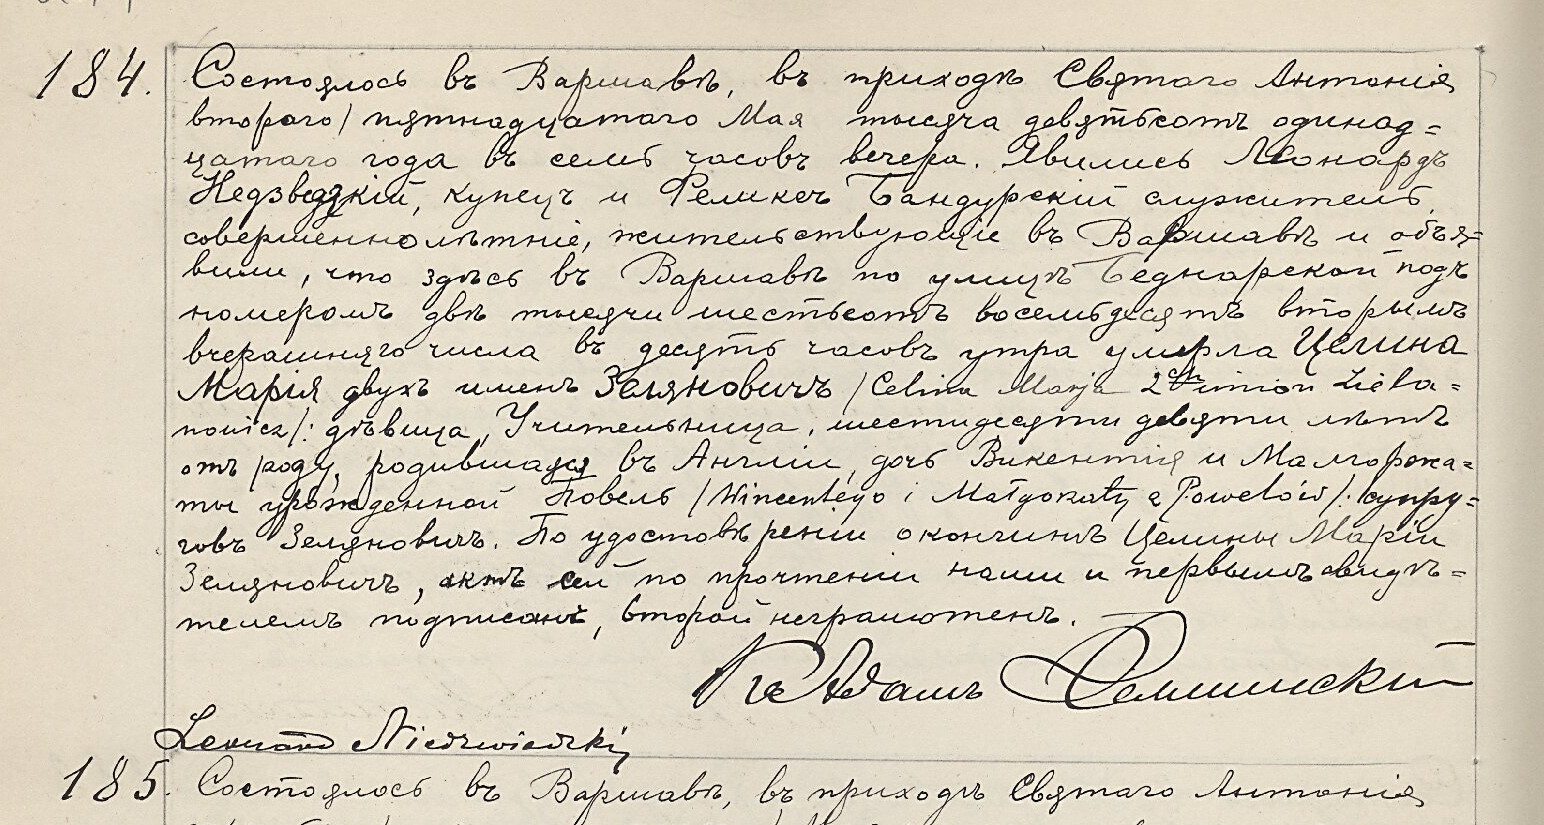 184. Состоялось въ Варшавѣ, въ приходѣ Святаго Антонія
второго/ пятнадцатаго Мая тысяча девятьсотъ одинад=
цатаго года въ семь часовъ вечера. Явились Леонардъ
Недзведзкій, купецъ и Феликсъ Бандурскій служитель,
совершеннолѣтніе, жительствующіе въ Варшавѣ и объя=
вили, что здѣсь въ Варшавѣ по улицѣ Беднарской подъ
номеромъ двѣ тысячи шестьсотъ восемьдесятъ вторымъ
вчерашняго числа въ десять часовъ утра умерла Целина
Марія двухъ именъ Зеляновичъ /Celina Marja 2ch imion Ziela=
nowicz/: дѣвица, Учительница, шестидесяти девяти лѣтъ
отъ роду, родившаяся въ Англіи, дочь Викентія и Малгоржа=
ты урожденной Повель /Wincentego i Małgorzaty z Powelów/: супру=
говъ Зеляновичъ. По удостовѣреніи о кончинѣ Целины Маріи
Зеляновичъ, актъ сей по прочтеніи нами и первымъ свидѣ=
телемъ подписанъ, второй неграмотенъ.
Кс Адамъ
Leonard Niedzwiedzki
185. Состоялось въ Варшавѣ, въ приходѣ Святаго Антонія